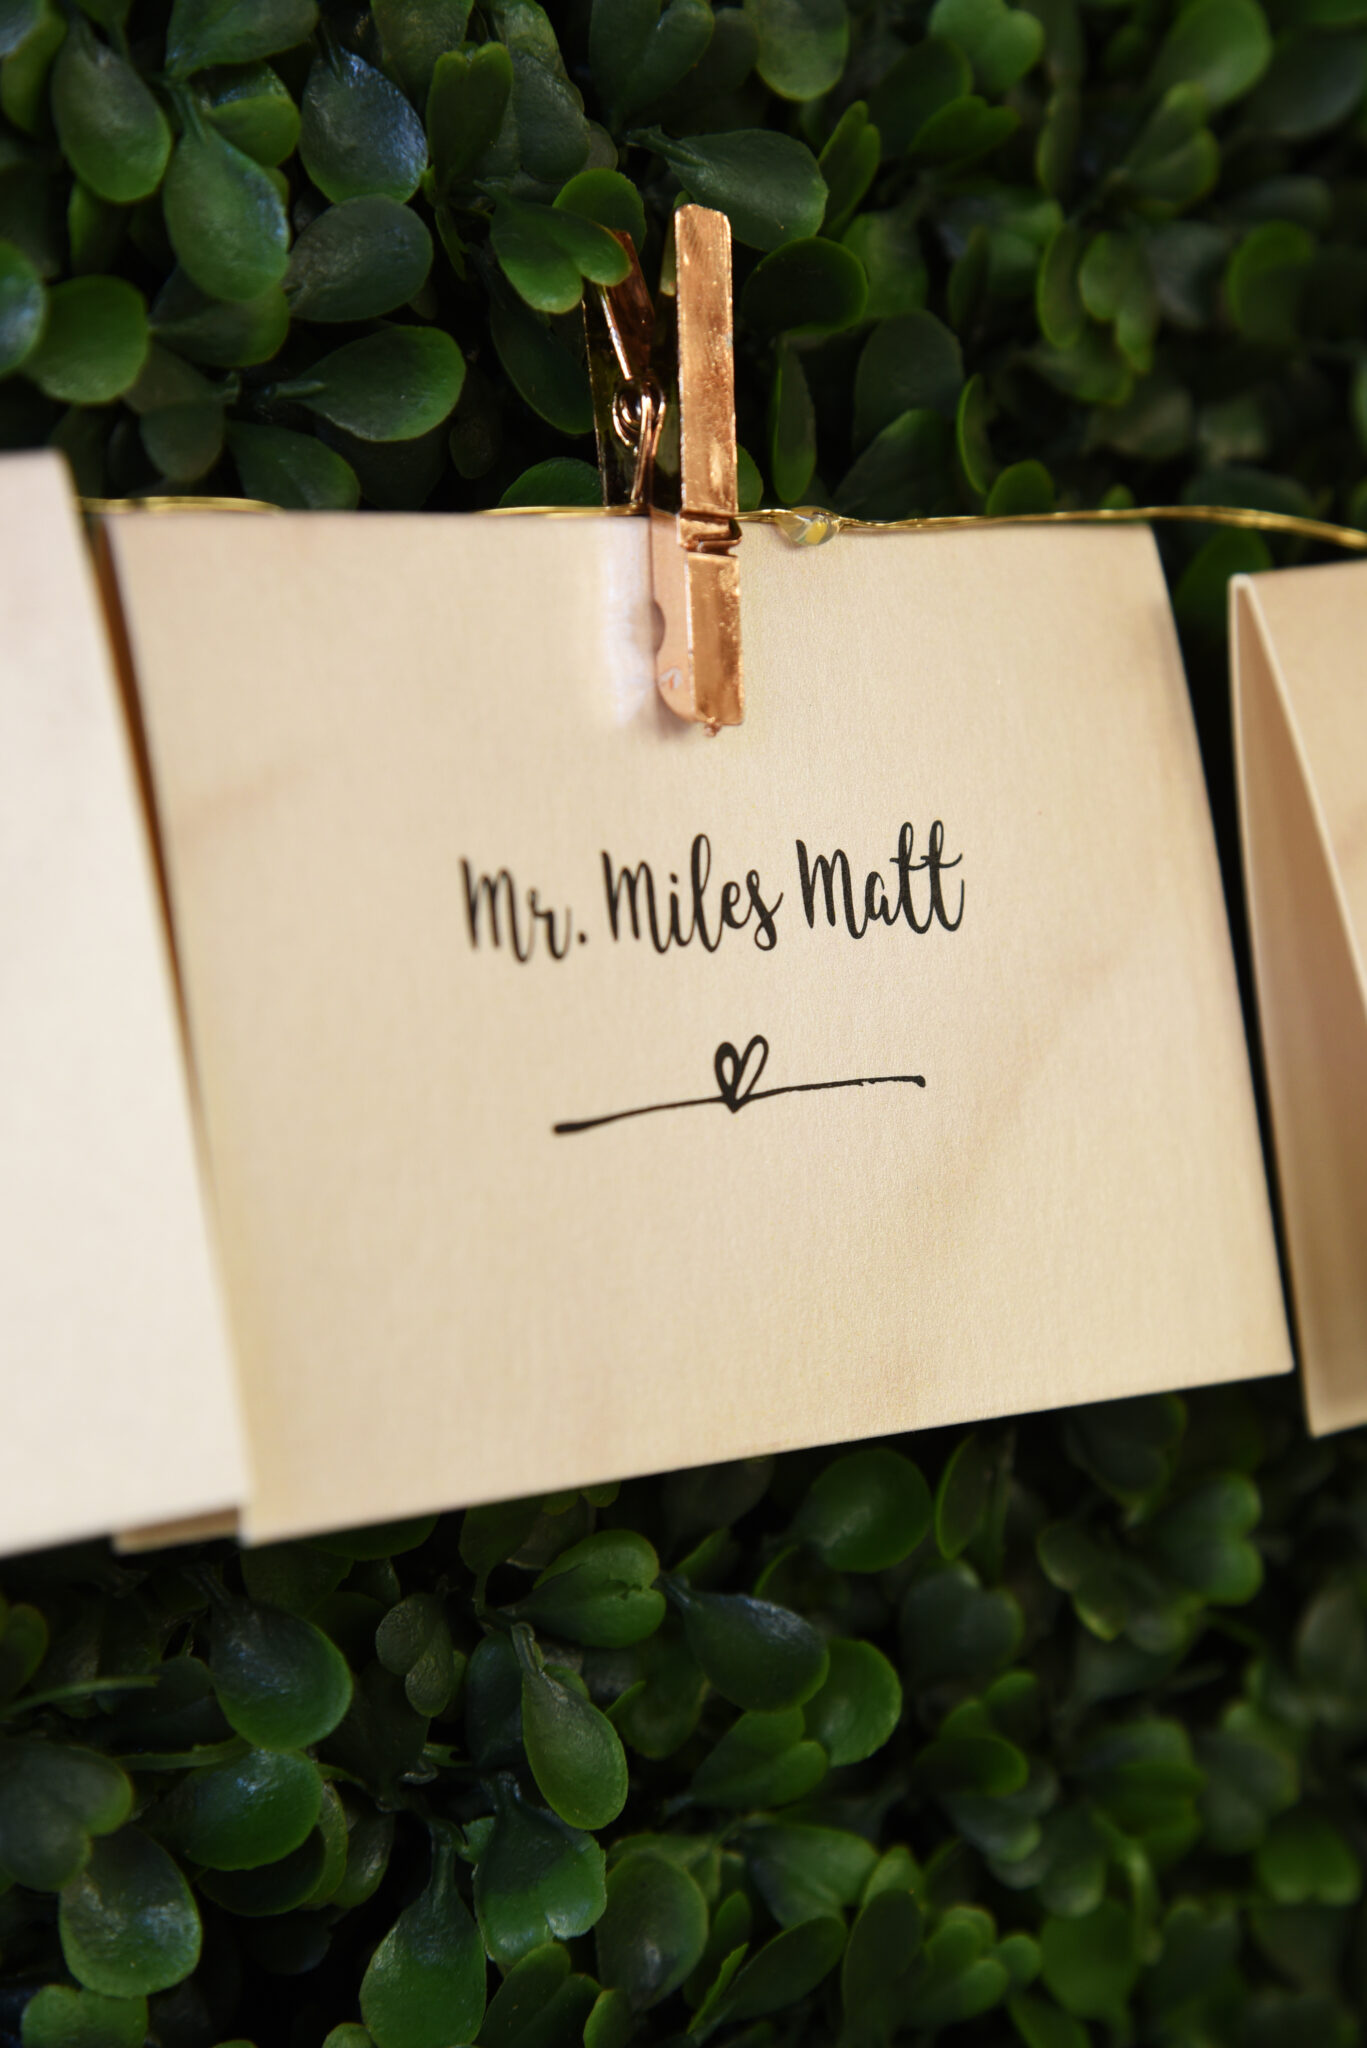 Mr. Miles Matt